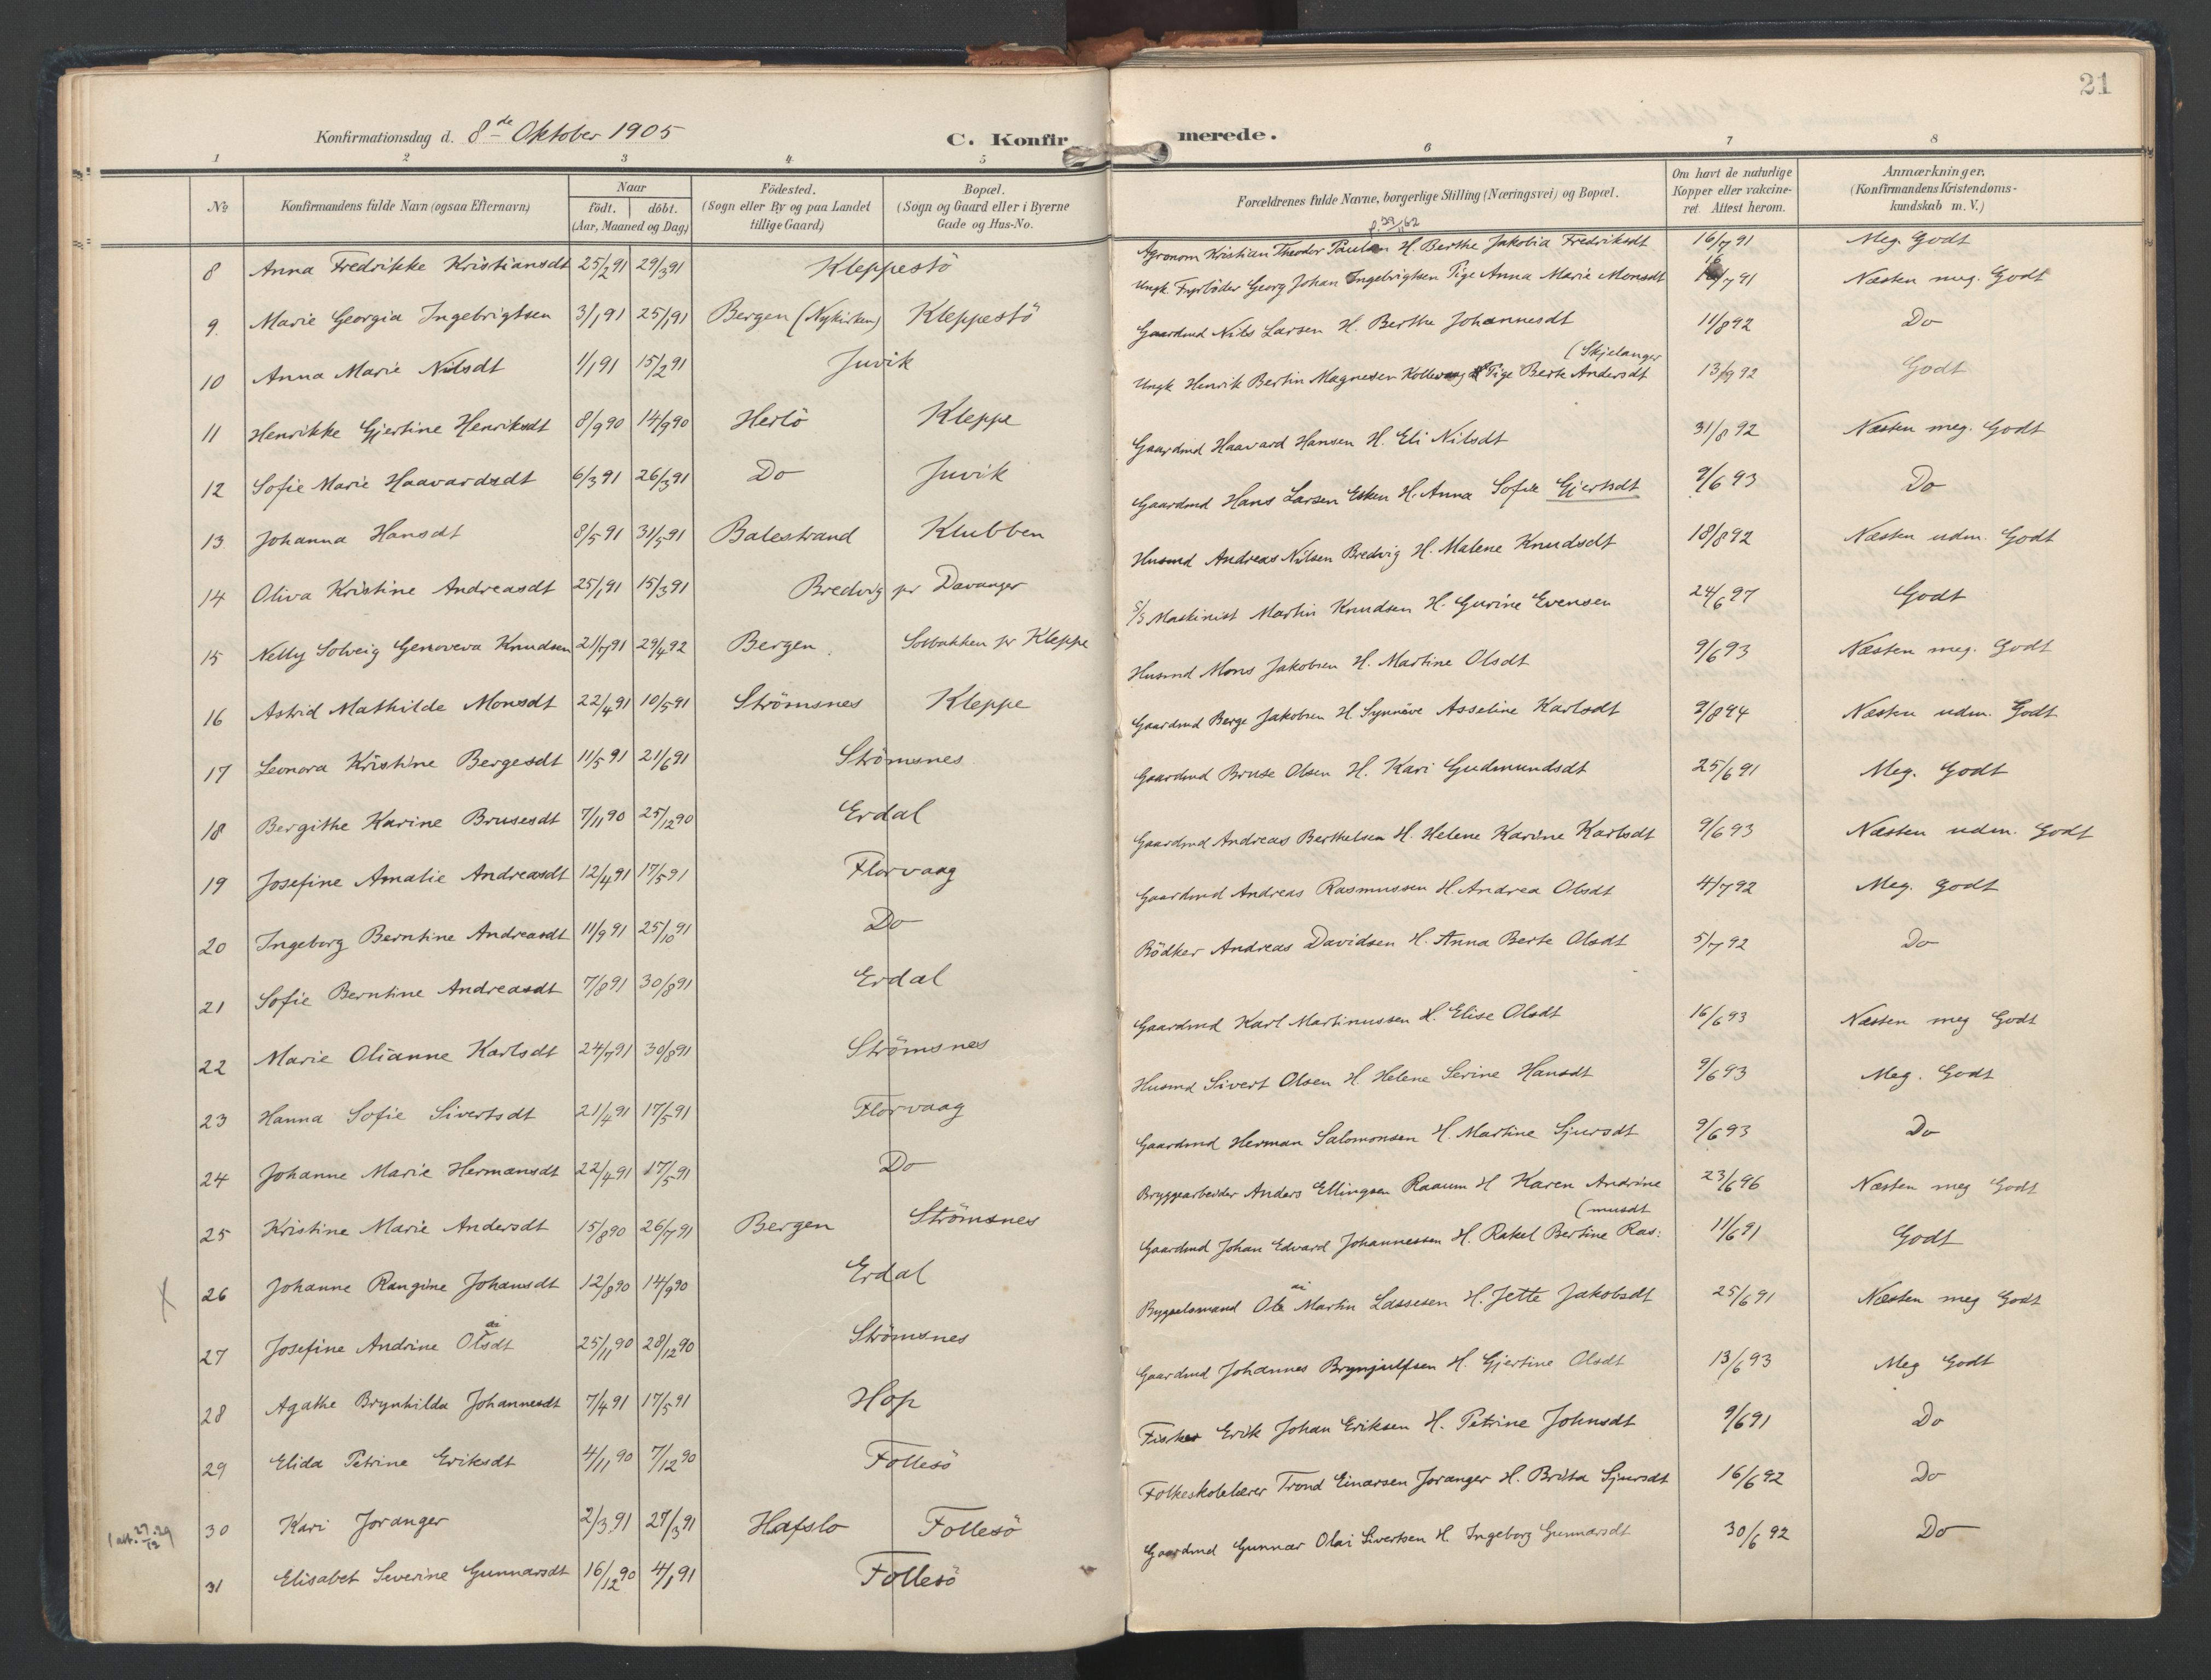 21
Konfirmationsdag d. 8de Oktober 1905
C. Konfirmerede.
1 2 3 4 5 6 7 8
No
Konfirmandens fulde Navn (ogsaa Efternavn)
Naar
födt. döbt.
(Aar, Maaned og Dag)
Födested.
(Sogn eller By og paa Landet
tillige Gaard)
Bopæl.
(Sogn og Gaard eller i Byerne
Gade og Hus-No.
Forældrenes fulde Navne, borgerlige Stilling (Næringsvei) og Bopæl.
Om havt de naturlige
Kopper eller vakcine-
ret. Attest herom.
Anmærkninger.
(Konfirmandens Kristendoms-
kundskab m. V.)
8 Anna Fredrikke Kristiansdt 25/2 91 29/3 91 Kleppestö Agronom Kristian Theodor Paulsen H. Berthe Jakobia Fredriksdt 16/7 91 Meg. Godt
9. Marie Georgia Ingebrigtsen 3/1 91 25/1 91 Bergen (Nykirken) Kleppestö Ungk. Fyrböder Georg Johan Ingebrigtsen Pige Anna Marie Monsdt 16/7 91 Næsten meg. Godt
10 Anna Marie Nilsdt 1/1 91 15/2 91 Juvik Gaardmd Nils Larsen H. Berthe Johannesdt 11/8 92 Do
11 Henrikke Gjertine Henriksdt 8/9 90 14/9 90 Herlö Kleppe Ungk Henrik Bertin Magnesen Kollevaag Pige Berte Andersdt (Skjelanger 13/9 92 Godt
12 Sofie Marie Haavardsdt 6/3 91 26/3 91 Do Juvik Gaardmd Haavard Hansen H. Eli Nilsdt 31/8 92 Næsten meg. Godt
13. Johanna Hansdt 8/5 91 31/5 91 Balestrand Klubben Gaardmd Hans Larsen Esken H. Anna Sofie Gjertsdt 9/6 93 Do
14 Oliva Kristine Andreasdt 25/1 91 15/3 91 Bredvig pr Davanger Husmd Andreas Nilsen Bredvig H. Malene Knudsdt 18/8 92 Næsten udm. Godt
15 Nelly Solveig Genoveva Knudsen 21/7 91 29/4 92 Bergen. Solbakken pr Kleppe S/S Maskinist Martin Knudsen H. Gurine Evensen 24/6 97 Godt
16 Astrid Mathilde Monsdt 22/4 91 10/5 91 Strömsnes Kleppe Husmd Mons Jakobsen H. Martine Olsdt 9/6 93 Næsten meg. Godt
17 Leonora Kristine Bergesdt 11/5 91 21/6 91 Strömsnes Gaardmd Berge Jakobsen H. Synnöve Asseline Karlsdt 9/8 94 Næsten udm. Godt
18 Bergithe Karine Brusesdt 7/11 90 25/12 90 Erdal Gaardmd Bruse Olsen H. Kari Gudmundsdt 25/6 91 Meg. Godt
19 Josefine Amalie Andreasdt 12/4 91 17/5 91 Florvaag Gaardmd Andreas Berthelsen H. Helene Karine Karlsdt 9/6 93 Næsten udm. Godt
20 Ingeborg Berntine Andreasdt 11/9 91 25/10 91 Do Gaardmd Andreas Rasmussen H. Andrea Olsdt 4/7 92 Meg. Godt
21 Sofie Berntine Andreasdt 7/8 91 30/8 91 Erdal Bödker Andreas Davidsen H. Anna Berte Olsdt 5/7 92 Do
22 Marie Olianne Karlsdt 24/7 91 30/8 91 Strömsnes Gaardmd Karl Martinussen H. Elise Olsdt 16/6 93 Næsten meg Godt
23 Hanna Sofie Sivertsdt 21/4 91 17/5 91 Florvaag Husmd Sivert Olsen H. Helene Serine Hansdt 9/6 93 Meg. Godt
24 Johanne Marie Hermansdt 22/4 91 17/5 91 Do Gaardmd Herman Salomonsen H. Martine Sjursdt 9/6 93 Do
25 Kristine Marie Andersdt 15/8 90 26/7 91 Bergen Strömsnes Bryggearbeider Anders Ellingsen Raaum H Karen Andrine 23/6 96 Næsten meg Godt
X 26 Johanne Rangine Johansdt 12/8 90 14/9 90 Erdal Gaardmd Johan Edvard Johannessen H. Rakel Bertine Ras: (musdt 11/6 91 Godt
27 Josefine Andrine Olsdt 25/11 90 28/12 90 Strömsnes Bygselsmand Ole Martin Lassesen H. Jette Jakobsdt 25/6 91 Næsten meg Godt
28 Agathe Brynhilda Johannesdt 7/4 91 17/5 91 Hop Gaardmd Johannes Brynjulfsen H. Gjertine Olsdt 13/6 93 Meg Godt
29 Elida Petrine Eriksdt 4/11 90 7/12 90 Follesö Fisker Erik Johan Eriksen H. Petrine Johnsdt 9/6 91 Do
30 Kari Joranger 2/3 91 27/3 91 Hafslo Follesö Folkeskolelærer Trond Einarsen Joranger H. Brita Sjursdt 16/6 92 Do
31 Elisabet Severine Gunnarsdt 16/12 90 4/1 91 Follesö Gaardmd Gunnar Olai Sivertsen H. Ingeborg Gunnarsdt 30/6 92 Do